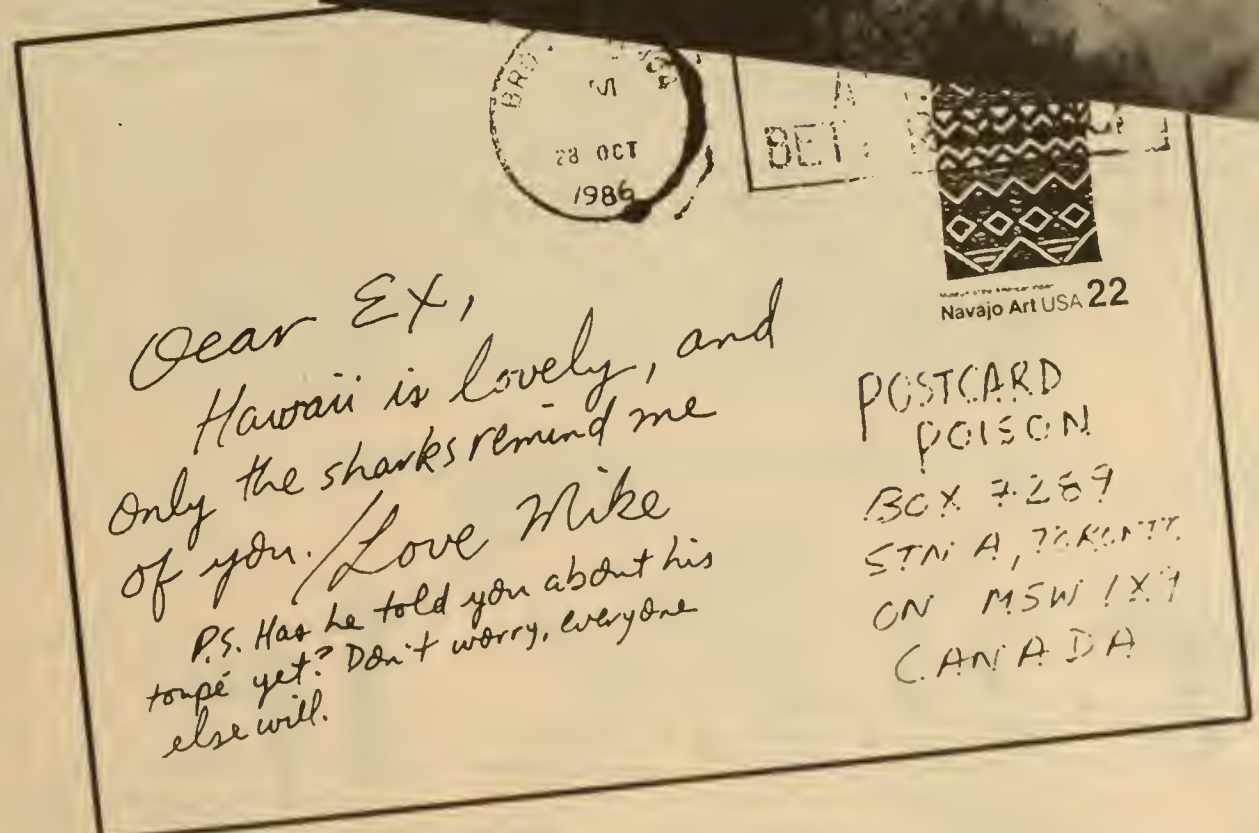 28 OCT
1986
BET
Navajo Art USA 22
Dear Ex,
Hawaii is lovely, and
only the sharks remind me
of you. / Love Mike
P.S. Has he told you about his
toupé yet? Don't worry, everyone
else will.
POSTCARD
POISON
BOX 7289
STN A, TORONTO
ON M5W 1X9
CANADA